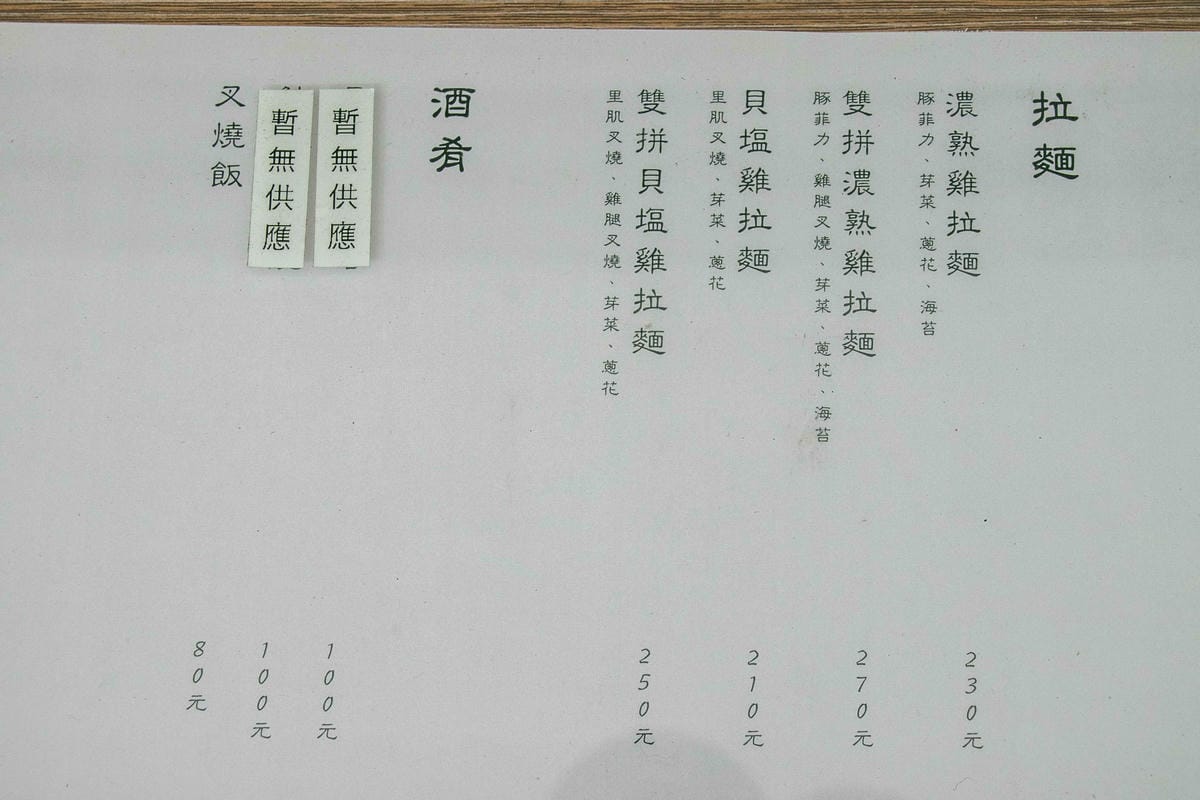 拉麵
濃熟雞拉麵
豚菲力、芽菜、蔥花、海苔
230元
雙拼濃熟雞拉麵
豚菲力、雞腿叉燒、芽菜、蔥花、海苔
270元
貝塩雞拉麵
里肌叉燒、芽菜、蔥花
210元
雙拼貝塩雞拉麵
里肌叉燒、雞腿叉燒、芽菜、蔥花
250元
酒肴
暫無供應
100元
暫無供應
100元
叉燒飯
80元